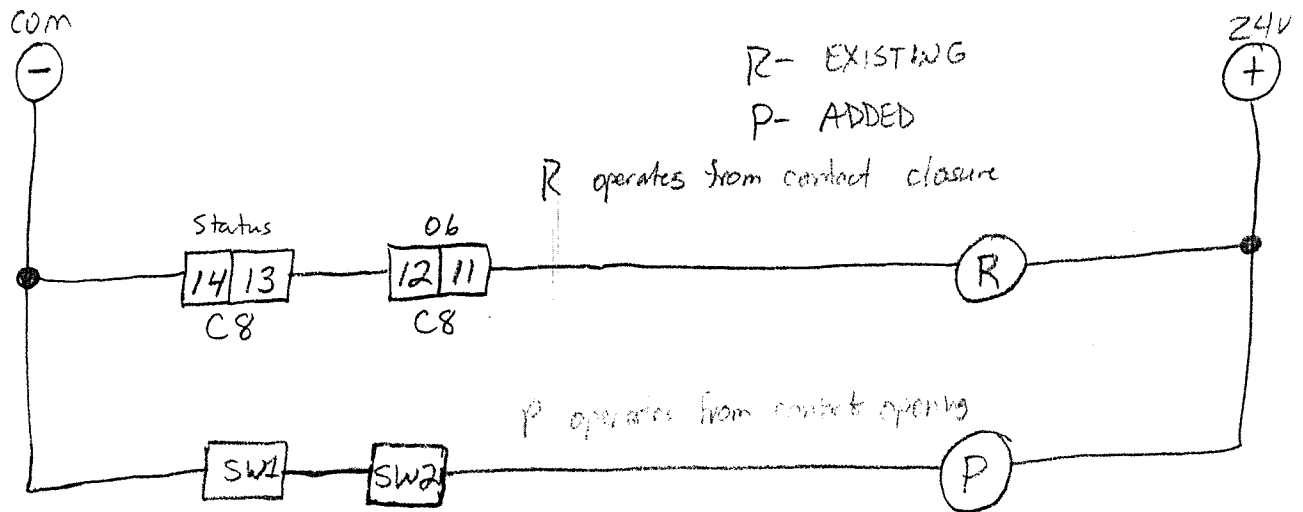 COM
24V
-
+
R- EXISTING
P- ADDED
R operates from contact closure
Status
06
14 13
12 11
R
C8
C8
P operates from contact opening
SW1
SW2
P